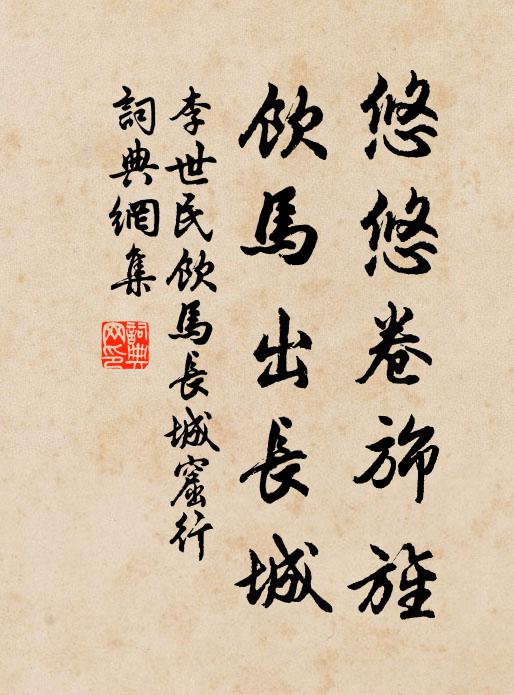 悠悠卷旆旌
飲馬出長城
李世民飲馬長城窟行
詞典網集
詞典网印